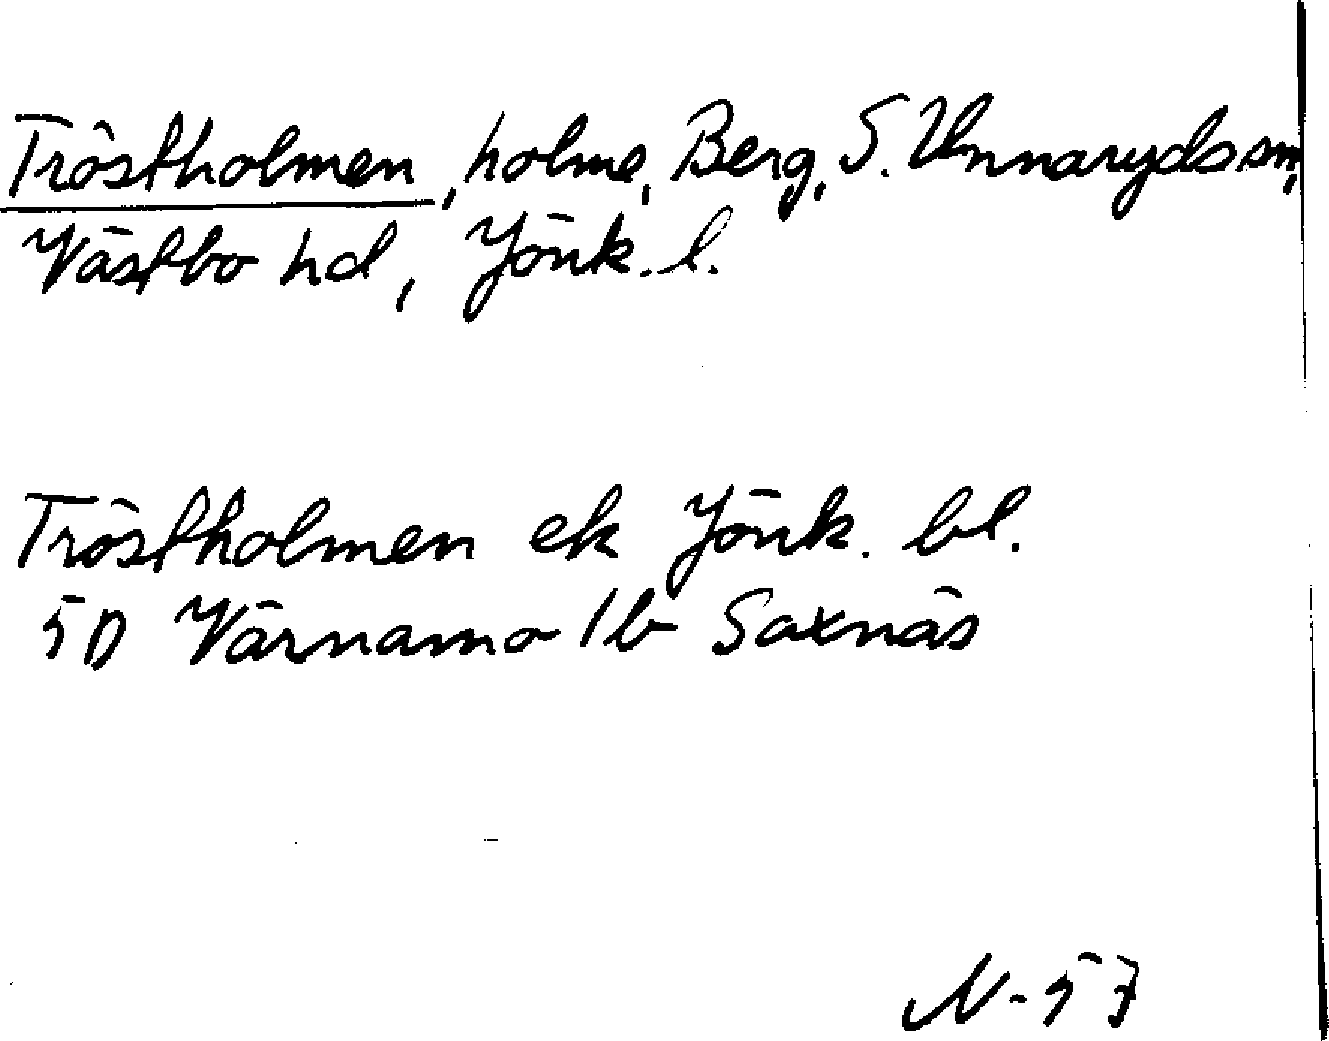 Tröstholmen, holme, Berg, S. Unnaryds sn,
Västbo hd, Jönk. l.
Tröstholmen ek Jönk. bl.
5D Värnamo 1b Saxnäs
N-57